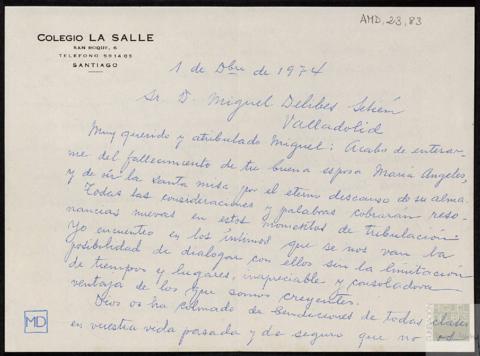 AMD, 23, 83
COLEGIO LA SALLE
SAN ROQUE, 6
TELEFONO 58 14 05
SANTIAGO
1 de Dbre de 1974
Sr. D. Miguel Delibes Setién
Valladolid
Muy querido y atribulado Miguel: Acabo de enterar-
me del fallecimiento de tu buena esposa María Angeles,
y de oír la santa misa por el eterno descanso de su alma.
Todas las consideraciones y palabras cobraran reso-
nancias nuevas en estos momentos de tribulación.
Yo encuentro en los íntimos que se nos van la
posibilidad de dialogar con ellos sin la limitación
de tiempos y lugares, inapreciable y consoladora
ventaja de los que somos creyentes.
Dios os ha colmado de bendiciones de todas clases
en vuestra vida pasada y de seguro que no
MD